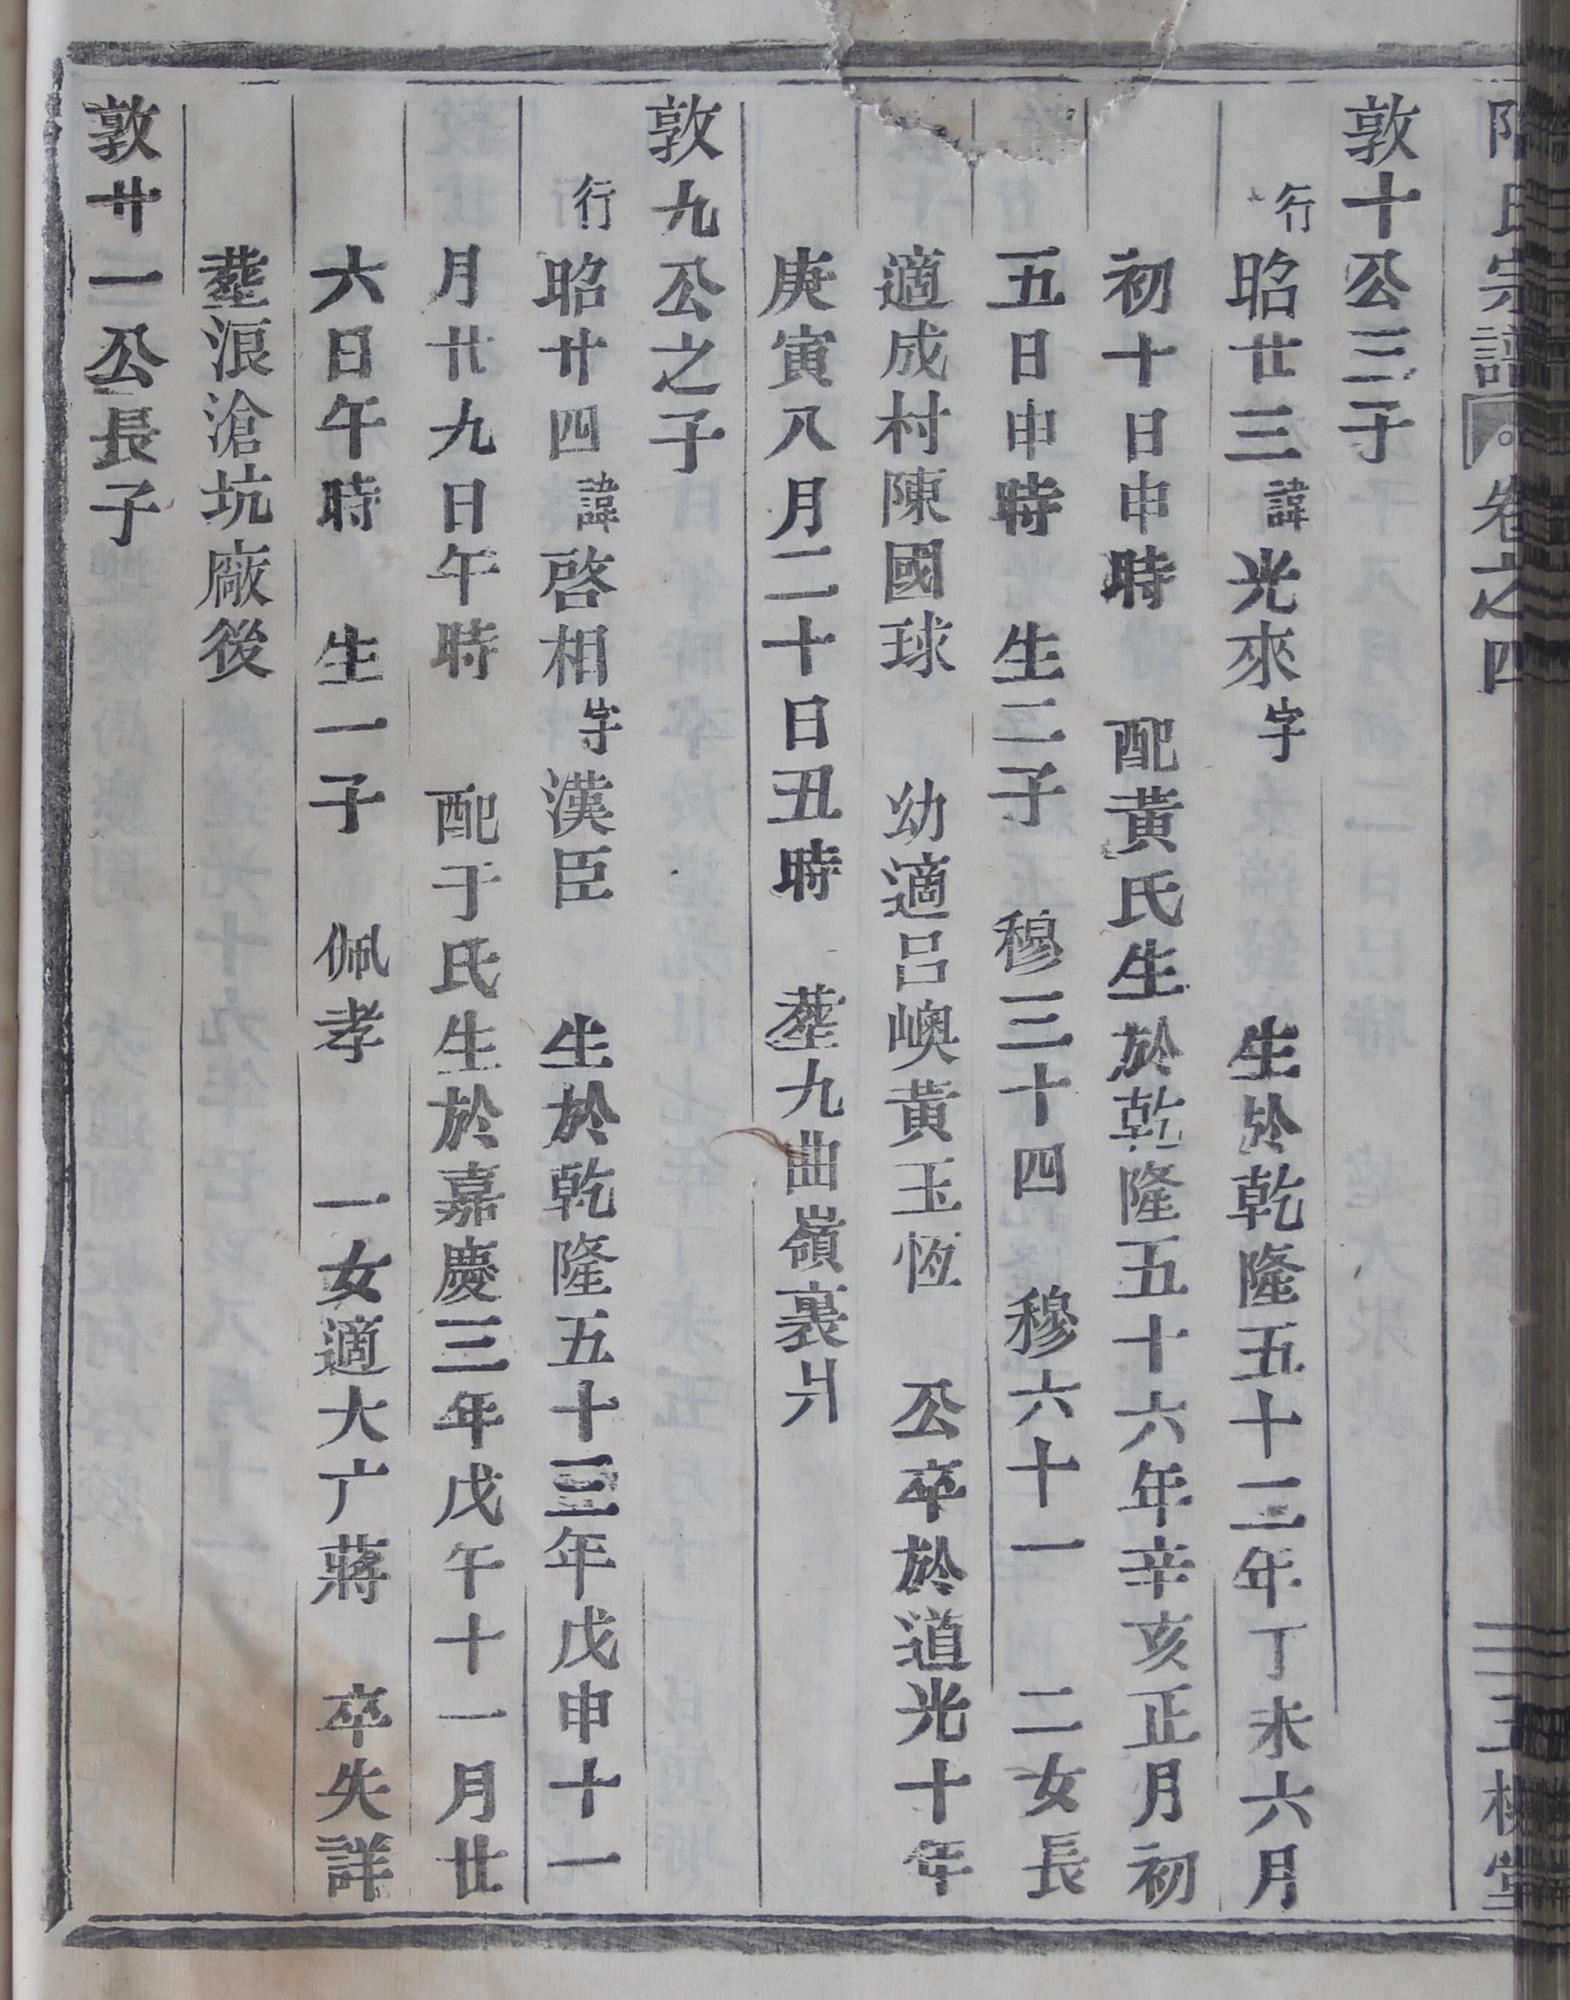 氏宗譜 卷之四 三槐堂
敦十公三子
行昭廿三諱光來字 生於乾隆五十二年丁未六月
初十日申時 配黃氏生於乾隆五十六年辛亥正月初
五日申時 生二子 穆三十四 穆六十一 二女長
適成村陳國球 幼適呂嶴黃玉恆 公卒於道光十年
庚寅八月二十日丑時 塟九曲嶺裏爿
敦九公之子
行昭廿四諱啓相字漢臣 生於乾隆五十三年戊申十一
月廿九日午時 配于氏生於嘉慶三年戊午十一月廿
六日午時 生一子 佩孝 一女適大亠蔣 卒失詳
塟浪滄坑廠後
敦廿一公長子